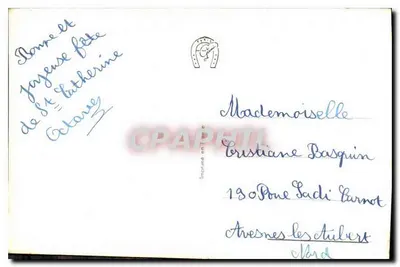 Bonne et
joyeuse fête
de St Catherine
Octave
CPAPHIL
Mademoiselle
Cristiane Basquin
190 Rue Sadi Carnot
Avesnes les Aubert
Nord